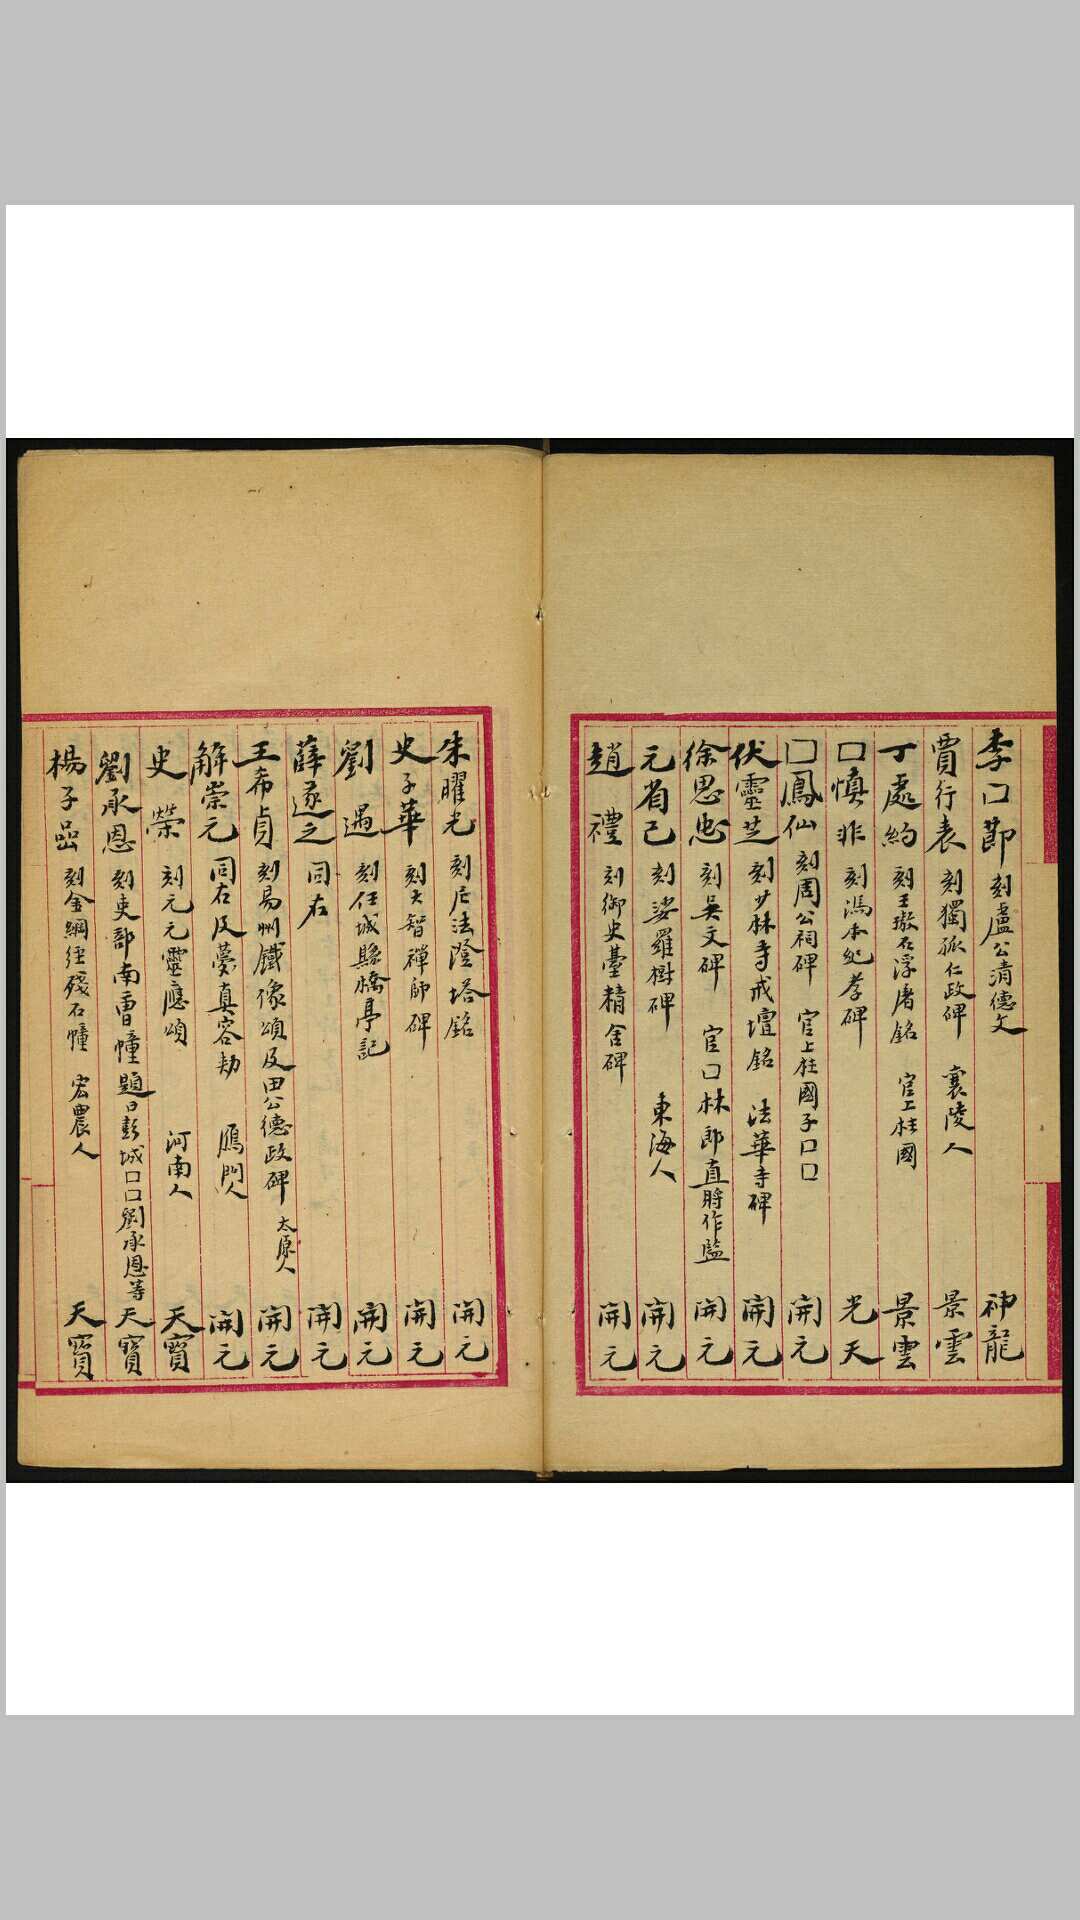 李□節 刻盧公清德文 神龍
賈行表 刻獨孤仁政碑 襄陵人 景雲
丁處約 刻王璬石浮屠銘 官上柱國 景雲
□慎非 刻馮本紀孝碑 光天
□鳳仙 刻周公祠碑 官上柱國子□□ 開元
伏靈芝 刻少林寺戒壇銘 法華寺碑 開元
徐思忠 刻吳文碑 官□林郎直將作監 開元
元省己 刻娑羅樹碑 東海人 開元
趙禮 刻御史臺精舍碑 開元
朱曜光 刻尼法隆塔銘 開元
史子華 刻大智禪師碑 開元
劉遇 刻任城縣橋亭記 開元
薛遂之 同右 開元
王希貞 刻易州鐵像頌及田公德政碑 太原人 開元
解崇元 同右及夢真容勅 鴈門人 開元
史榮 刻元元靈應頌 河南人 天寶
劉承恩 刻吏部南曹幢 題曰彭城□□劉承恩等 天寶
楊子 刻金綱經殘石幢 宏農人 天寶